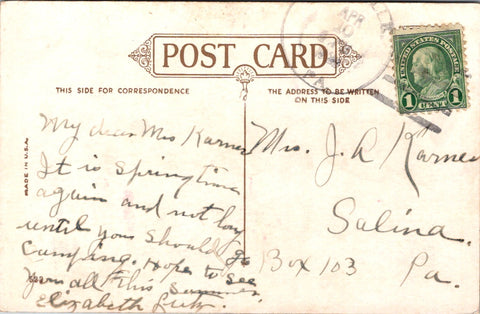 POST CARD
THIS SIDE FOR CORRESPONDENCE
THE ADDRESS TO BE WRITTEN
ON THIS SIDE
MADE IN U.S.A.
UNITED STATES POSTAGE
1 CENT 1
APR
10
PA.
My dear Mrs Karnes
It is Springtime
again and not long
until you should go
Camping. Hope to see
you all this summer.
Elizabeth
Mrs. J. A Karnes
Salina.
Box 103 Pa.